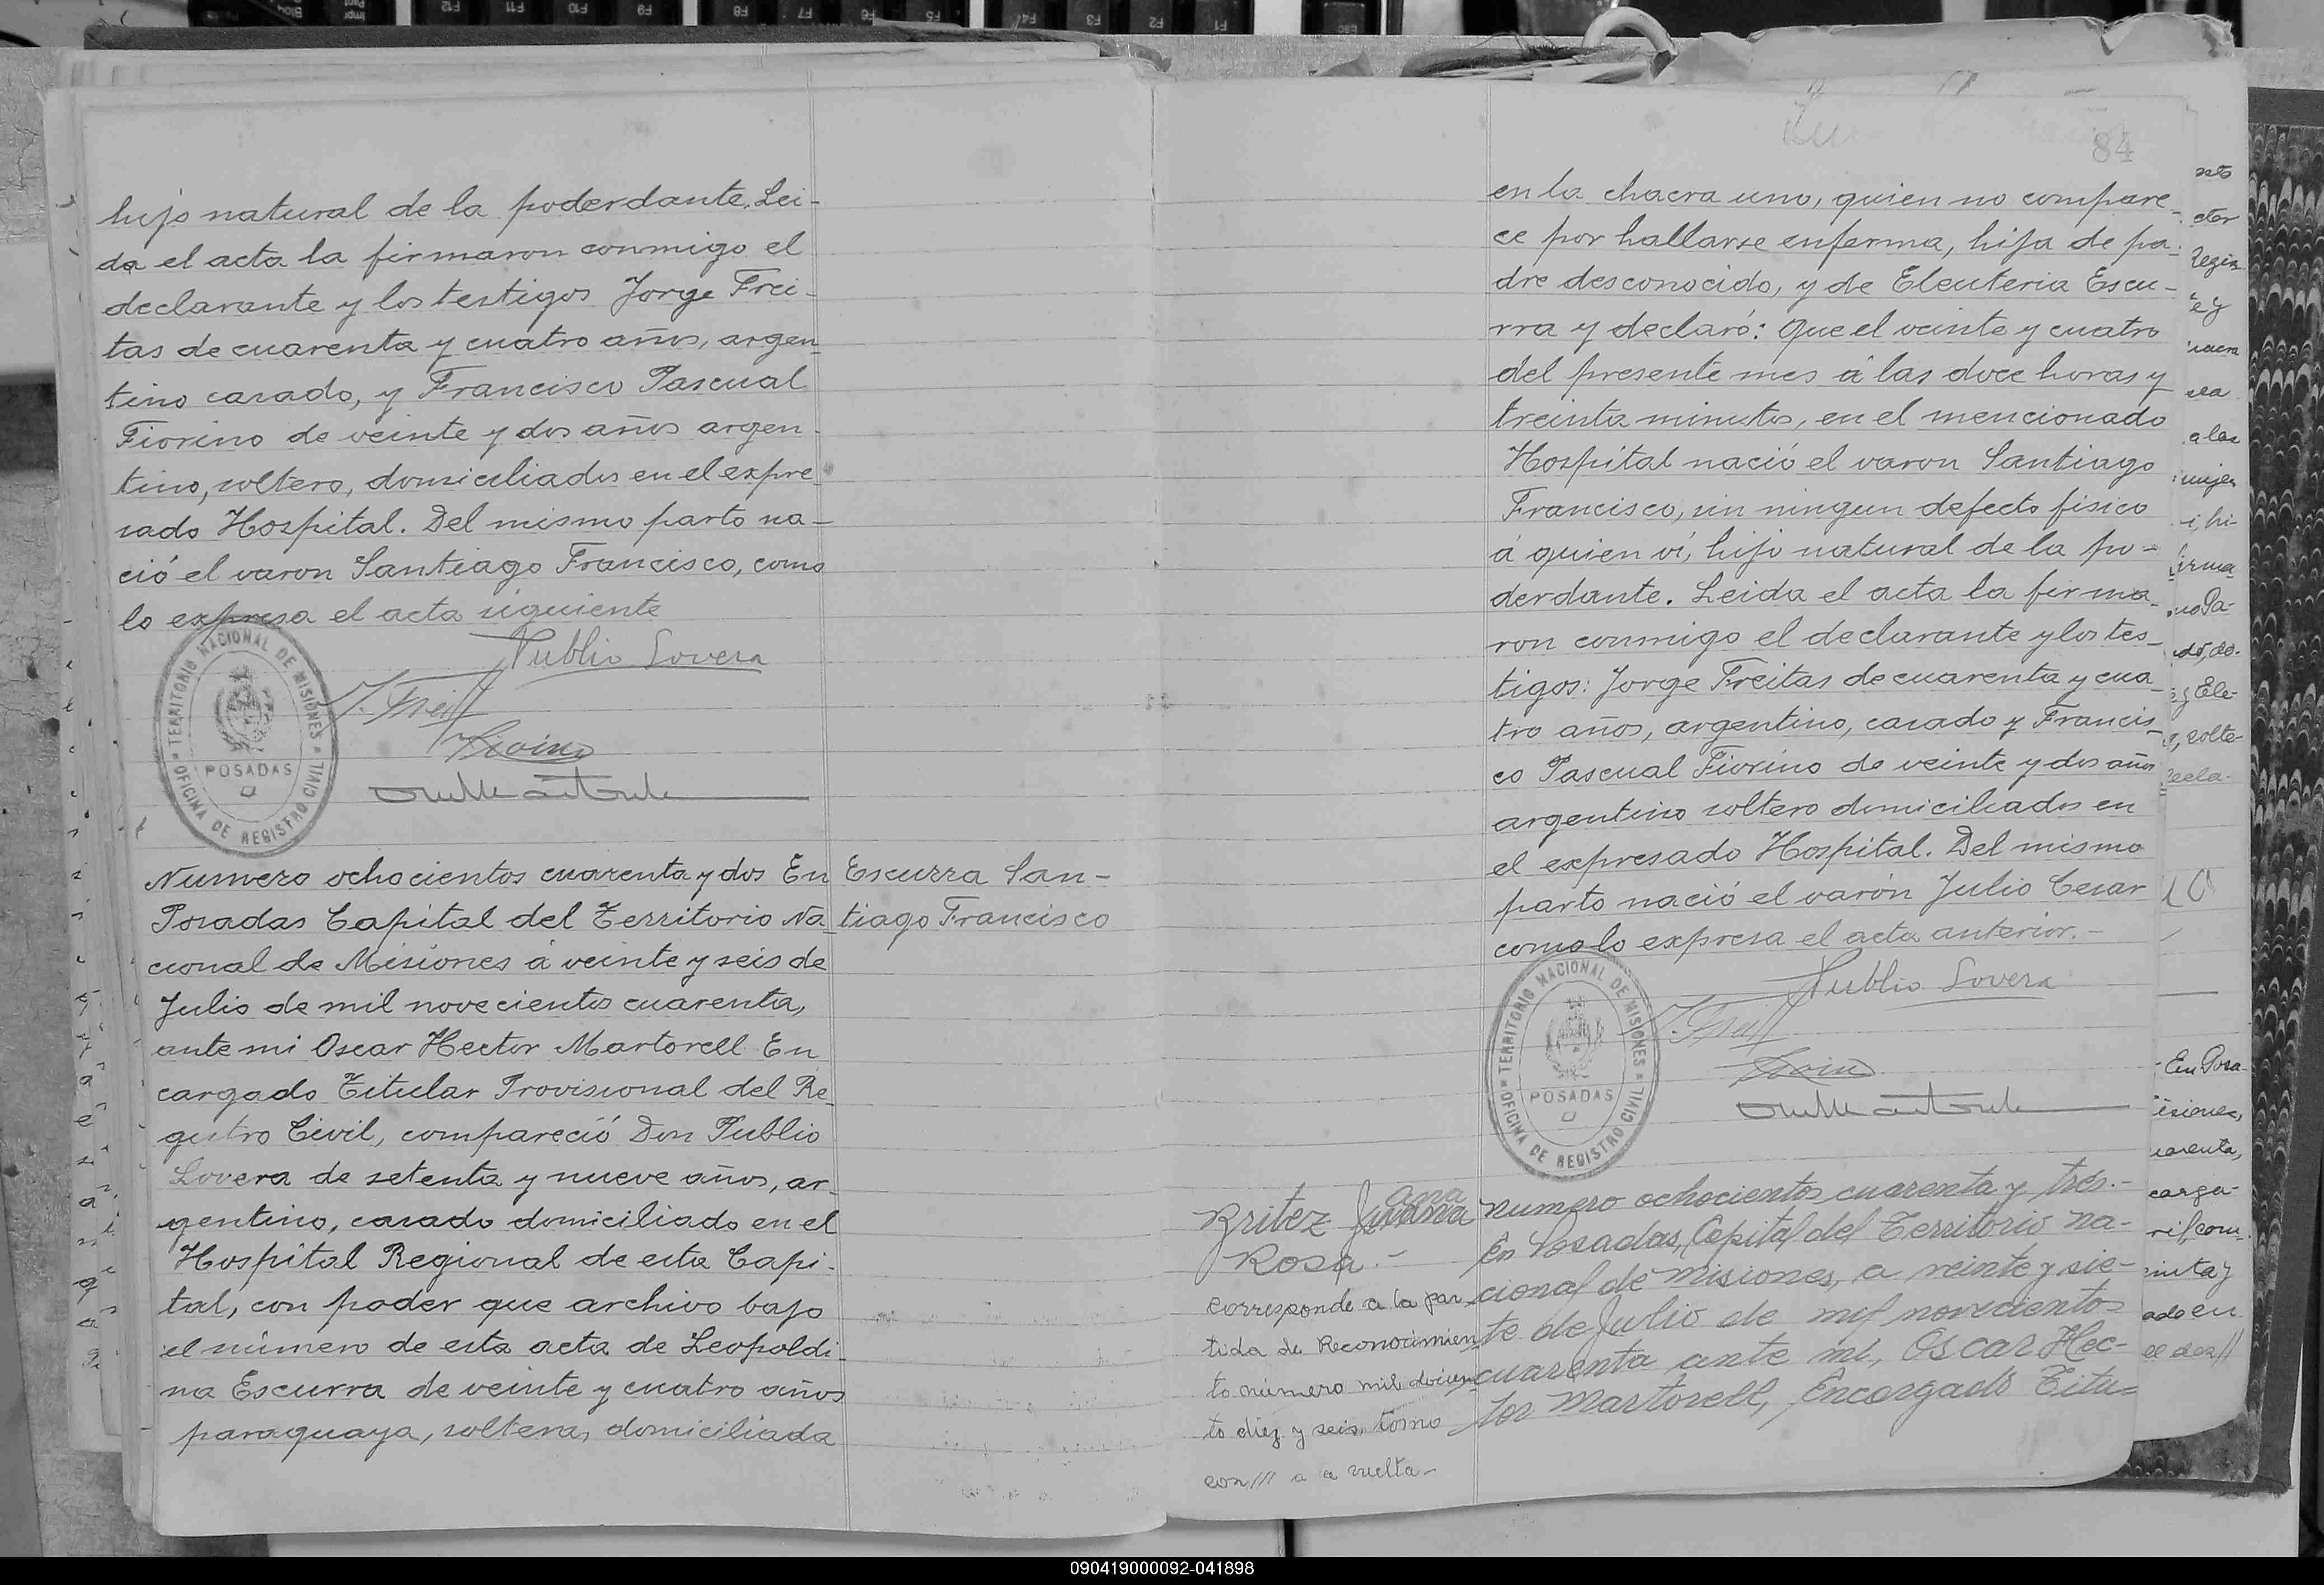 hijo natural de la poderdante. Lei-
da el acta la firmaron conmigo el
declarante y los testigos Jorge Frei-
tas de cuarenta y cuatro años, argen-
tino casado, y Francisco Pascual
Fiorino de veinte y dos años argen-
tino, soltero, domiciliados en el expre-
sado Hospital. Del mismo parto na-
ció el varon Santiago Francisco, como
lo expresa el acta siguiente
Publio Lovera
J. Freit
Fiorino
TERRITORIO NACIONAL DE MISIONES
POSADAS
OFICINA DE REGISTRO CIVIL
Escurra San-
tiago Francisco
Numero ochocientos cuarenta y dos En
Posadas Capital del Territorio Na-
cional de Misiones á veinte y seis de
Julio de mil novecientos cuarenta,
ante mi Oscar Hector Martorell En
cargado Titular Provisional del Re-
gistro Civil, compareció Don Publio
Lovera de setenta y nueve años, ar-
gentino, casado domiciliado en el
Hospital Regional de esta Capi-
tal, con poder que archivo bajo
el número de esta acta de Leopoldi-
na Escurra de veinte y cuatro años
paraguaya, soltera, domiciliada
84
en la chacra uno, quien no compare-
ce por hallarse enferma, hija de pa-
dre desconocido, y de Eleuteria Escu-
rra y declaró: Que el veinte y cuatro
del presente mes á las doce horas y
treinta minutos, en el mencionado
Hospital nació el varon Santiago
Francisco, sin ningun defecto fisico
á quien ví, hijo natural de la po-
derdante. Leida el acta la firma-
ron conmigo el declarante y los tes-
tigos: Jorge Freitas de cuarenta y cua-
tro años, argentino, casado y Francis-
co Pascual Fiorino de veinte y dos años
argentino soltero domiciliados en
el expresado Hospital. Del mismo
parto nació el varón Julio Cesar
como lo expresa el acta anterior.-
Publio Lovera
J. Freit
TERRITORIO NACIONAL DE MISIONES
POSADAS
OFICINA DE REGISTRO CIVIL
Britez Juana
Ana
Rosa.-
Corresponde a la par
tida de Reconocimien
to número mil docien
to diez y seis, tomo
con /// a a vuelta-
Numero ochocientos cuarenta y tres.-
En Posadas, Capital del Territorio Na-
cional de Misiones, a veinte y sie-
te de Julio de mil novecientos
cuarenta ante mi, Oscar Hec-
tor Martorell, Encargado Titu-
En Posa-
isiones,
arenta,
carga-
090419000092-041898